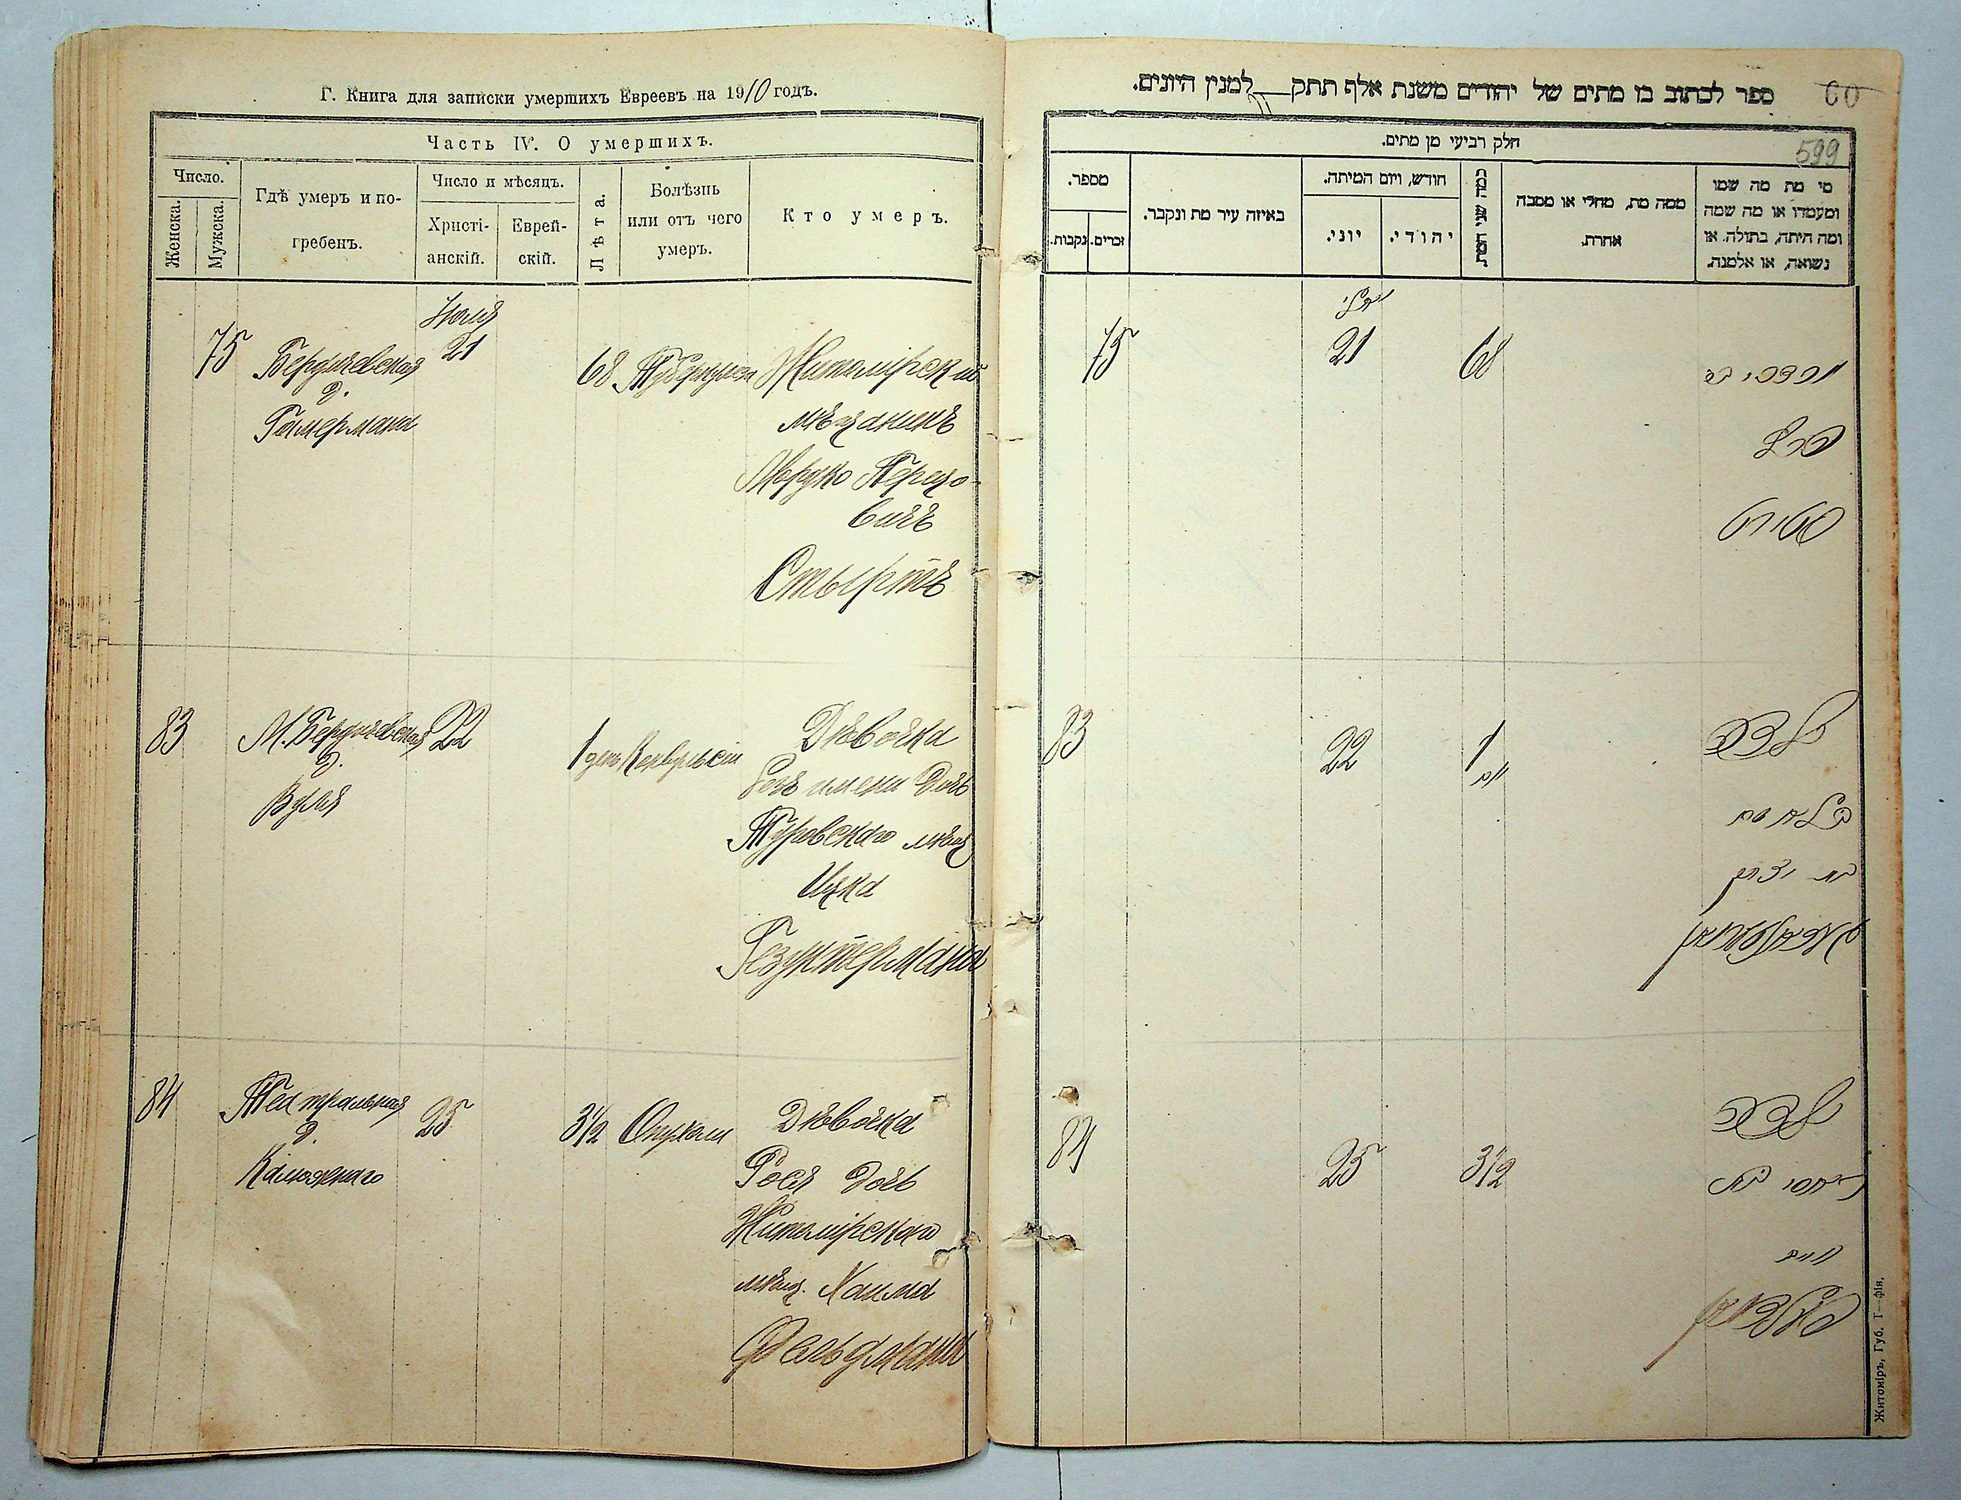 Г. Книга для записки умершихъ Евреевъ на 1910 годъ.
Часть IV. О умершихъ.
Число.
Женска.
Мужска.
Гдѣ умеръ и по-
гребенъ.
Число и мѣсяцъ.
Христі-
анскій.
Еврей-
скій.
Лѣта.
Болѣзнь
или отъ чего
умеръ.
Кто умеръ.
75
Бердичевская
д.
Гамермана
Июля
21
68
Житомірскій
мѣщанинъ
Мордко
Перецо-
вичъ
83
М. Бердичевская
д.
22
1 день
Конвульсіи
Дѣвочка
безъ имени дочь
Туровскаго мѣщ
Ицка
Гезунтермана
84
Театральная
д.
25
3½
Опухоли
Дѣвочка
Рося дочь
Житомірскаго
мѣщ. Хаима
Фельдмана
ספר לכתוב בו מתים של יהודים משנת אלף תתק למנין היונים.
60
599
חלק רביעי מן מתים.
מספר.
זכרים.
נקבות.
באיזה עיר מת ונקבר.
חודש, ויום המיתה.
יוני.
יהודי.
כמה שני המת.
ממה מת, מחלי או מסבה
אחרת.
מי מת מה שמו
ומעמדו או מה שמה
ומה היתה, בתולה, או
נשואה, או אלמנה.
75
יולי
21
68
מרדכי ב
פרץ
83
22
1
ילדה
בלא שם
בת יצחק
84
25
3½
ילדה
חיים
פעלדמאן
Житоміръ, Губ. Т—фія.